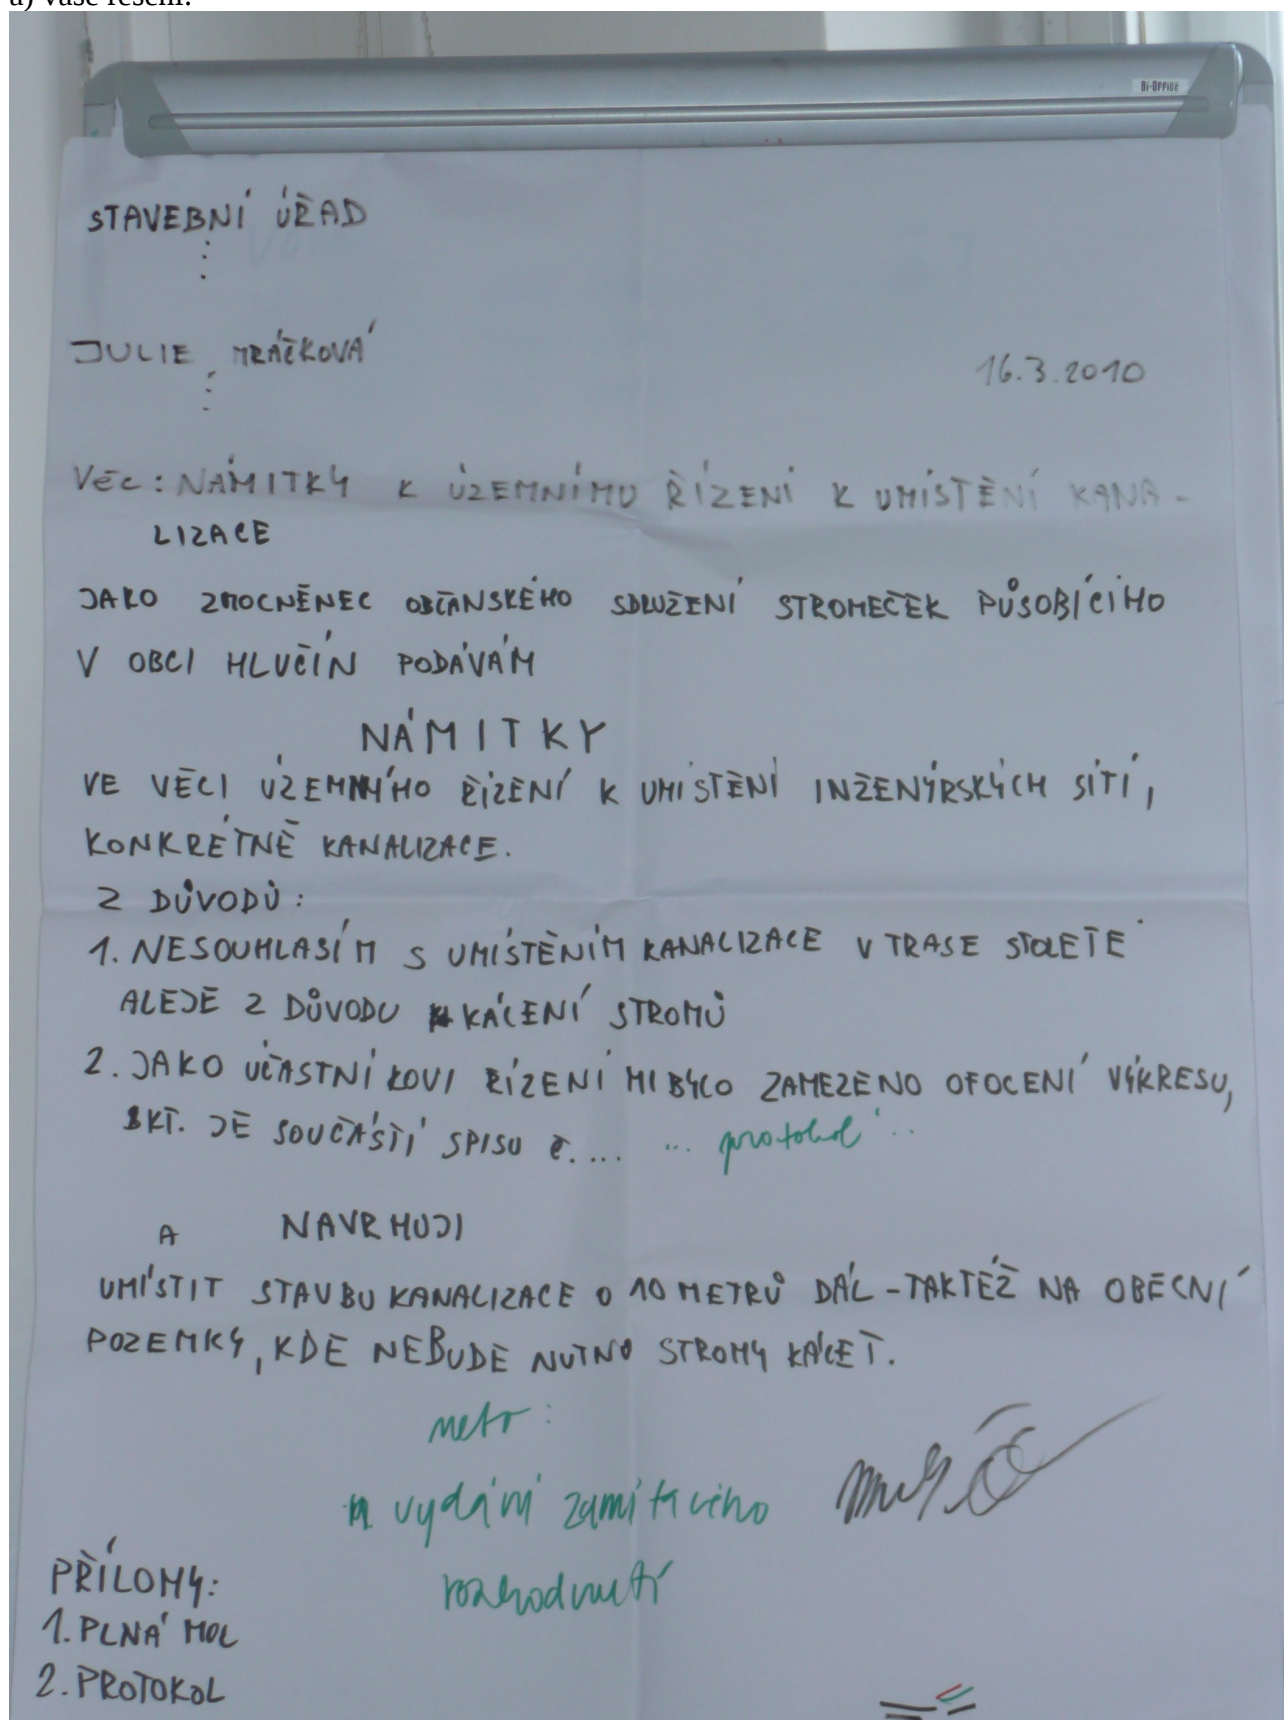 a) Vaše řešení:
Bi-Office
STAVEBNÍ ÚŘAD
JULIE MRÁČKOVÁ
16.3.2010
Věc: NÁMITKY K ÚZEMNÍMU ŘÍZENÍ K UMÍSTĚNÍ KANA-
LIZACE
JAKO ZMOCNĚNEC OBČANSKÉHO SDRUŽENÍ STROMEČEK PŮSOBÍCÍHO
V OBCI HLUČÍN PODÁVÁM
NÁMITKY
VE VĚCI ÚZEMNÍHO ŘÍZENÍ K UMISTĚNÍ INŽENÝRSKÝCH SÍTÍ,
KONKRÉTNĚ KANALIZACE.
Z DŮVODŮ:
1. NESOUHLASÍM S UMÍSTĚNÍM KANALIZACE V TRASE STOLETÉ
ALEJE Z DŮVODU KÁCENÍ STROMŮ
2. JAKO ÚČASTNÍKOVI ŘÍZENÍ MI BYLO ZAMEZENO OFOCENÍ VÝKRESU,
KT. JE SOUČÁSTÍ SPISU Č. ... ... protokol ...
A NAVRHUJI
UMÍSTIT STAVBU KANALIZACE O 10 METRŮ DÁL - TAKTÉŽ NA OBECNÍ
POZEMKY, KDE NEBUDE NUTNO STROMY KÁCET.
nebo:
vydání zamítavého
rozhodnutí
PŘÍLOHY:
1. PLNÁ MOC
2. PROTOKOL